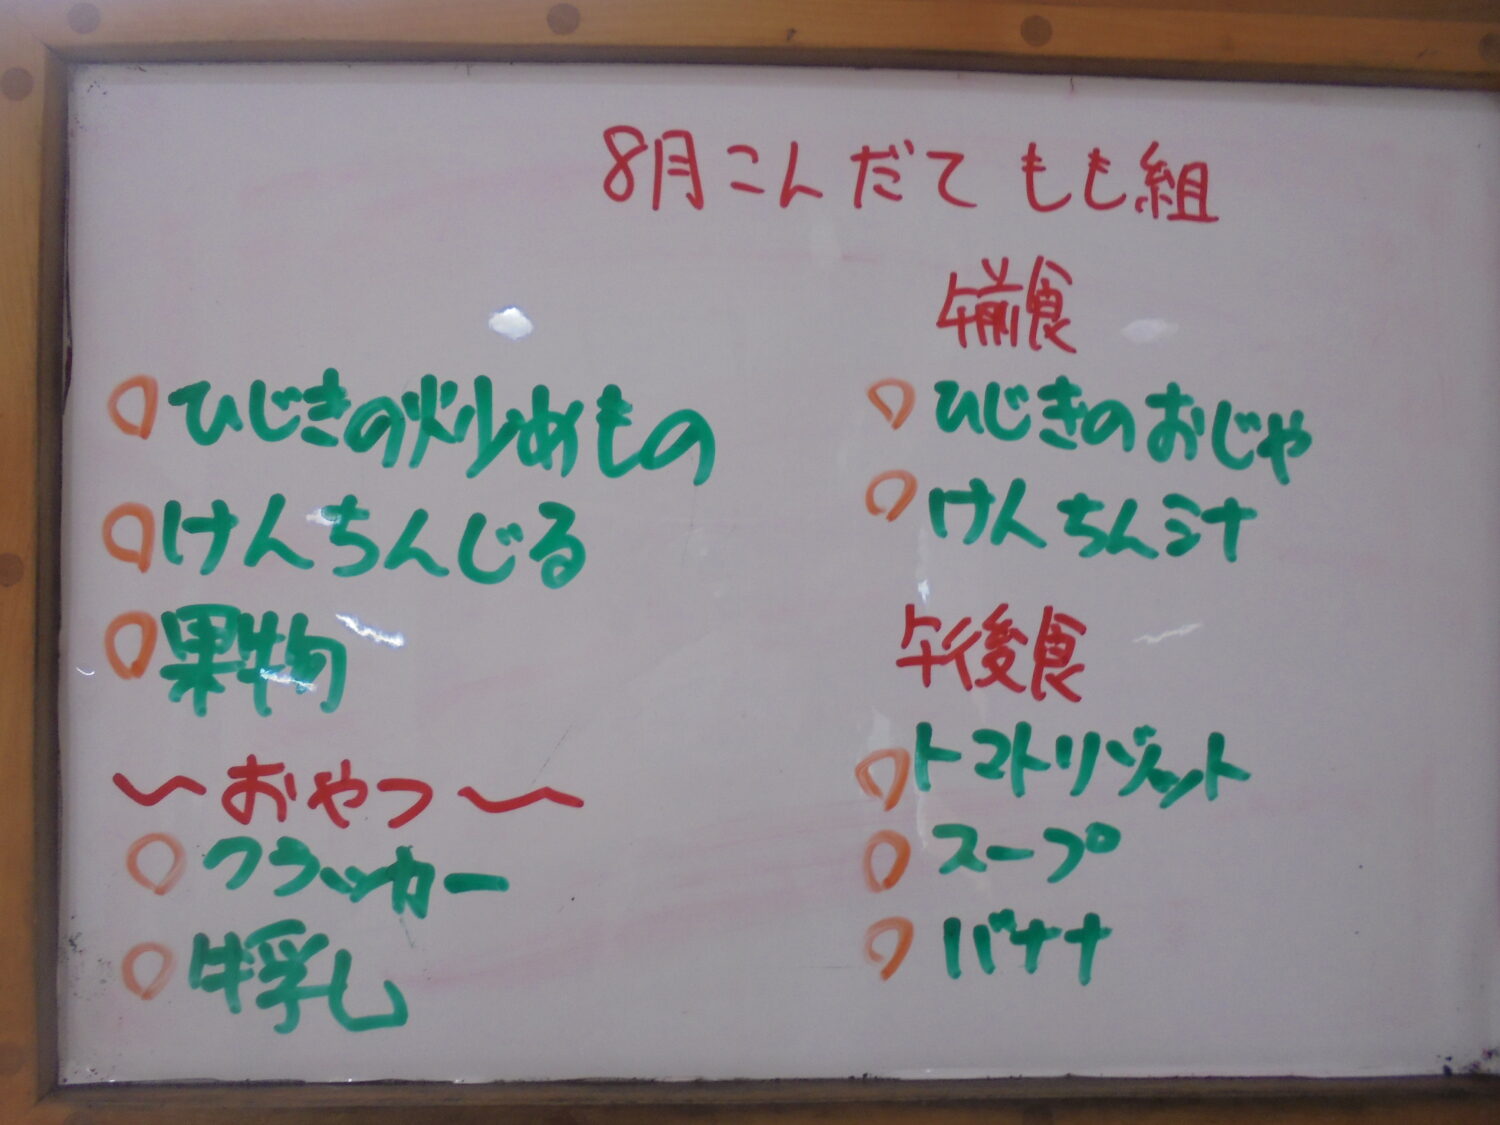 8月こんだて もも組
ひじきの炒めもの
けんちんじる
果物
～おやつ～
クラッカー
牛乳
午前食
ひじきのおじや
けんちん汁
午後食
トマトリゾット
スープ
バナナ